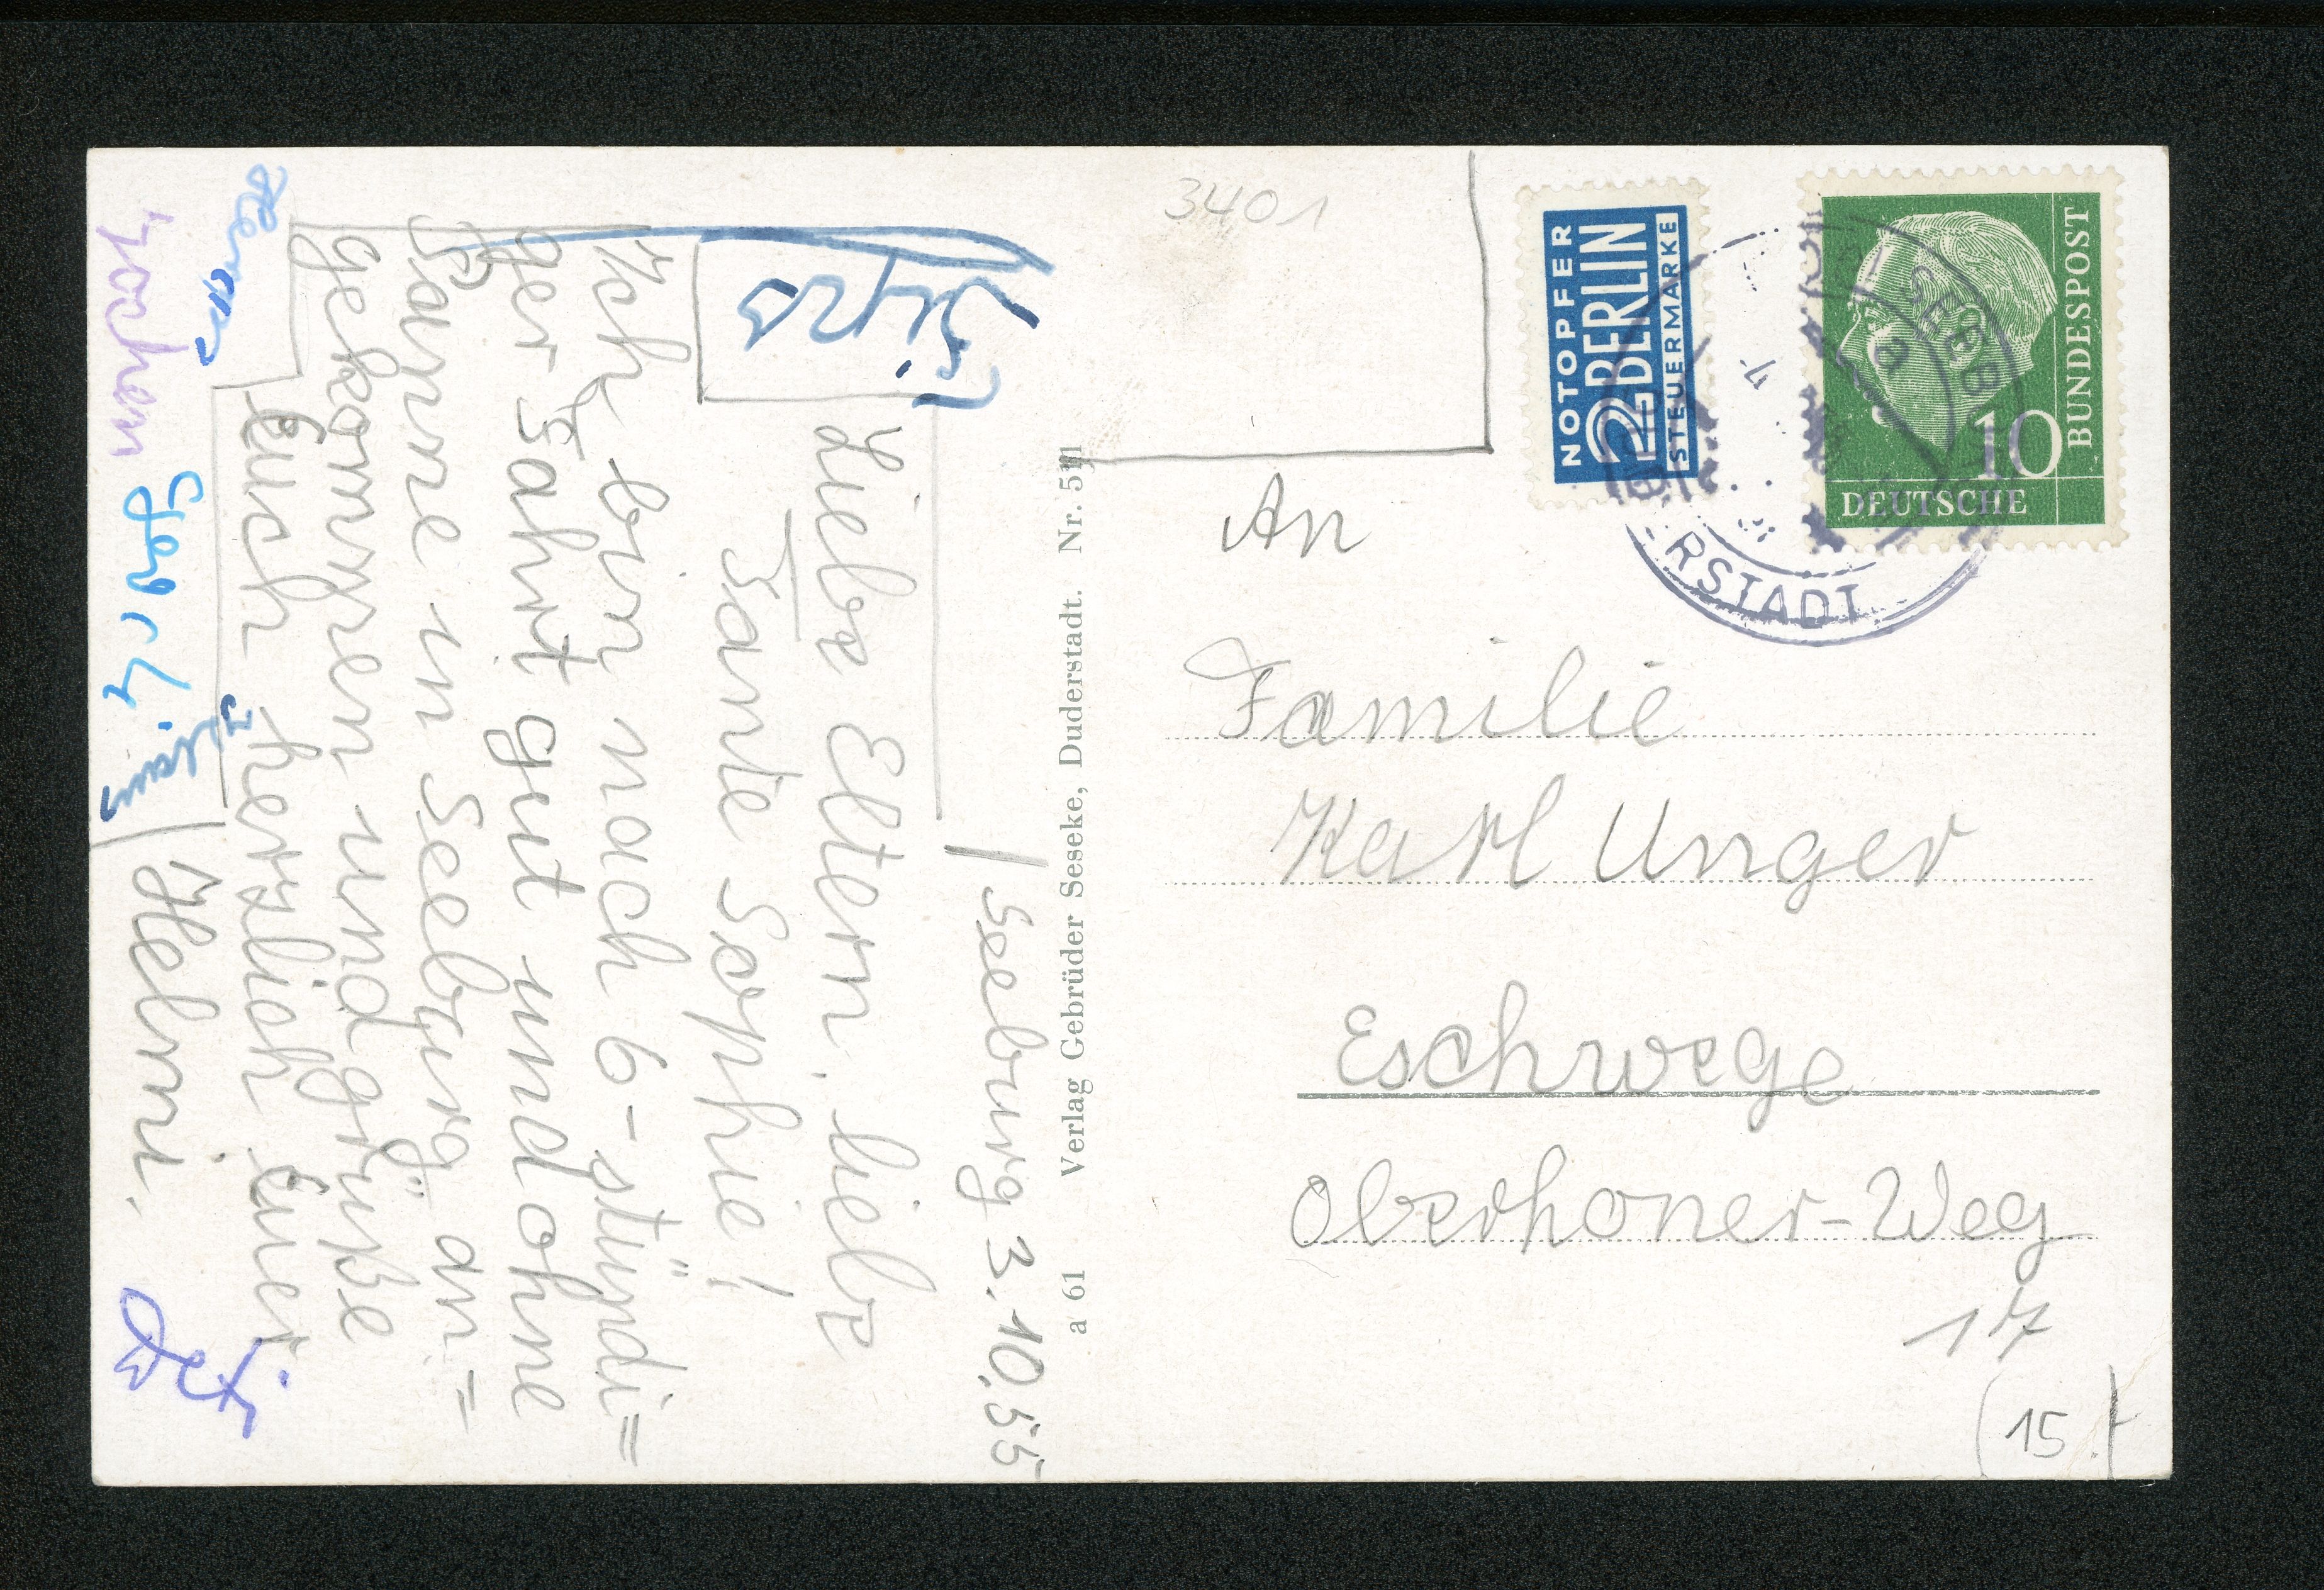 Seeburg 3.10.55
Liebe Eltern, liebe
Tante Sophie!
Ich bin nach 6-stündi=
ger Fahrt gut und ohne
Panne in Seeburg an=
gekommen und grüße
Euch herzlich Euer
Helmi.
Jochen
Gerd
Klaus
Verlag Gebrüder Seseke, Duderstadt. Nr. 5
a 61
3401
NOTOPFER
2 BERLIN
STEUERMARKE
DEUTSCHE
BUNDESPOST
10
SEEB
a
RSTADT
An
Familie
Karl Unger
Eschwege
Oberhoner-Weg
17
(15)